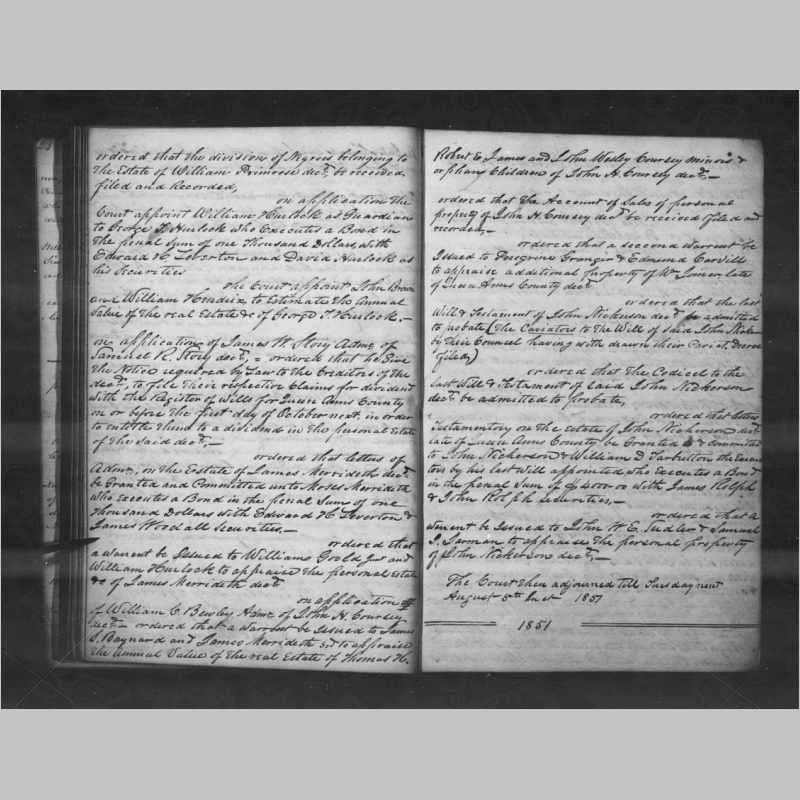 ordered that the division of Negroes belonging to
the Estate of William Primrose decd, be received
filed and Recorded,
on application the
Court appoint William Hurlock as Guardian
to George T Hurlock who Executes a Bond in
the penal Sum of one Thousand Dollars with
Edward H. Leverton and David Hurlock as
his Securities
the Court appoint John Brown
and William Hendrix to Estimate the Annual
Value of the real Estate &c of George T Hurlock.—
on application of James W. Story Admr of
Samuel R. Story decd, = ordered that he Give
the Notice required by Law to the Creditors of the
decd, to file their respective Claims for dividend
with the Register of Wills for Queen Anns County
on or before the first day of October next, in order
to entitle them to a dividend in the personal Estate
of the Said decd,—
ordered that letters of
Admn, on the Estate of James Merrideth decd
be Granted and Committed unto Moses Merrideth
who executes a Bond in the penal Sum of one
thousand Dollars with Edward H Leverton &
James Woodall Securities.—
ordered that
a warent be Issued to William Goold Jr and
William Hurlock to appraise the personal Estate
&c of James Merrideth decd
on application
of William C. Bewley Admr of John H. Coursey
decd — ordered that a warrent be Issued to James
S. Baynard and James Merrideth to appraise
the annual Value of the real Estate of Thomas H.
Robert E, James and John Wesley Coursey minors &
orphans Children of John H. Coursey decd,—
ordered that the Account of Sales of personal
property of John H. Coursey decd be received filed and
recorded,—
ordered that a second warrent be
Issued to Peregrine Granger & Edmund Carvill
to appraise additional property of Wm Joiner late
of Queen Anns County decd
ordered that the last
Will & Testament of John Nickerson decd be admitted
to probate (the Caviators to the Will of said John Nicker
by their Counsel having with drawn their Caviat,
filed,)
ordered that the Codicel to the
last Will & testament of said John Nickerson
decd be admitted to probate,
ordered that letters
testamentory on the estate of John Nickerson
late of Queen Anns County be Granted & Committed
to John Nickerson & William D Tarbutton the Execu
tors by his last Will appointed, who executes a Bond
in the penal Sum of $4000-00 with James Rolph
& John Rolph securities,—
ordered that a
warent be Issued to John W. E. Sudler & Samuel
J. Jarman to appraise the personal property
of John Nickerson decd,—
The Court then adjourned till Tuesday next
August 5th Inst 1851
1851